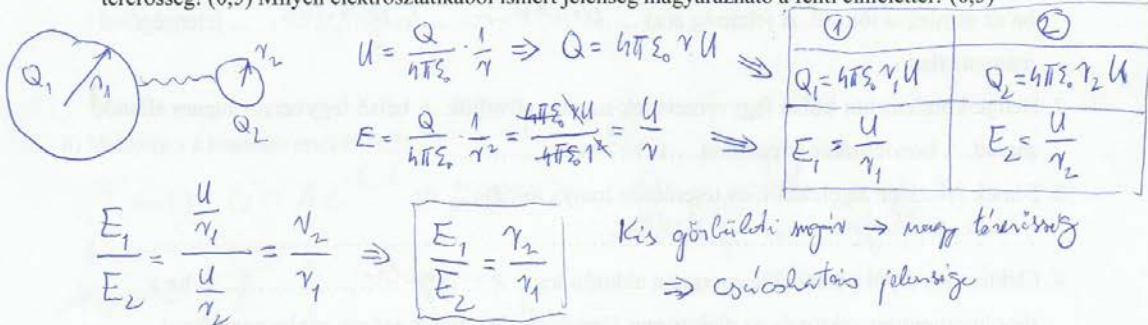 térerősség. (0,5) Milyen elektrosztatikából ismert jelenség magyarázható a fenti elmélettel? (0,5)
Q₁ r₁ r₂ Q₂
U = Q/4πε₀ · 1/r ⇒ Q = 4πε₀ r U
E = Q/4πε₀ · 1/r² = 4πε₀ r U/4πε₀ r² = U/r
① ②
Q₁ = 4πε₀ r₁ U Q₂ = 4πε₀ r₂ U
E₁ = U/r₁ E₂ = U/r₂
E₁/E₂ = (U/r₁)/(U/r₂) = r₂/r₁ ⇒ E₁/E₂ = r₂/r₁
Kis görbületi sugár → nagy térerősség
⇒ csúcshatás jelensége